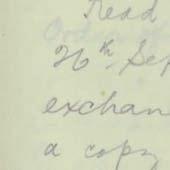 Read
26th Sep
exchan
a copy